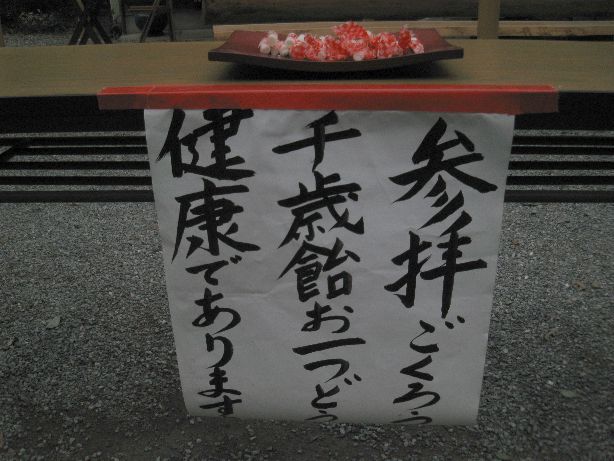 参拝ごくろう
千歳飴お一つどう
健康であります